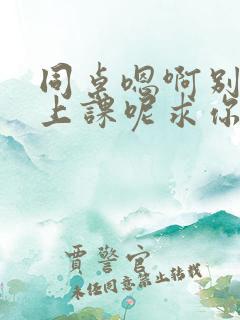 同桌嗯啊别
上課呢求你
賈警官
未经同意禁止转载